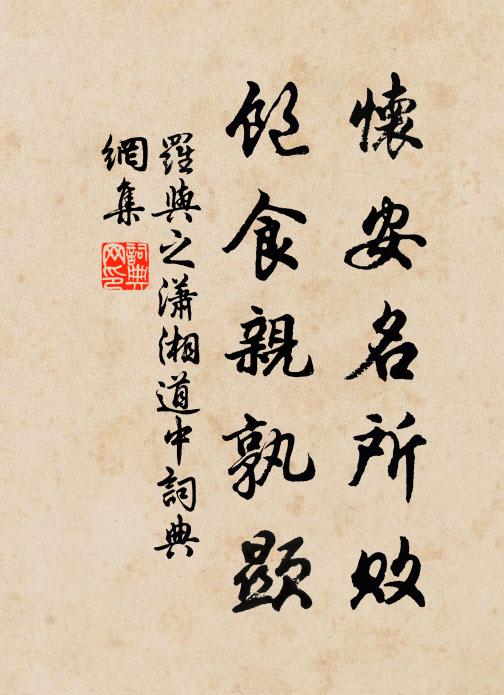 懷安名所敗
飽食親孰顯
羅與之瀟湘道中詞典
網集
詞典網印